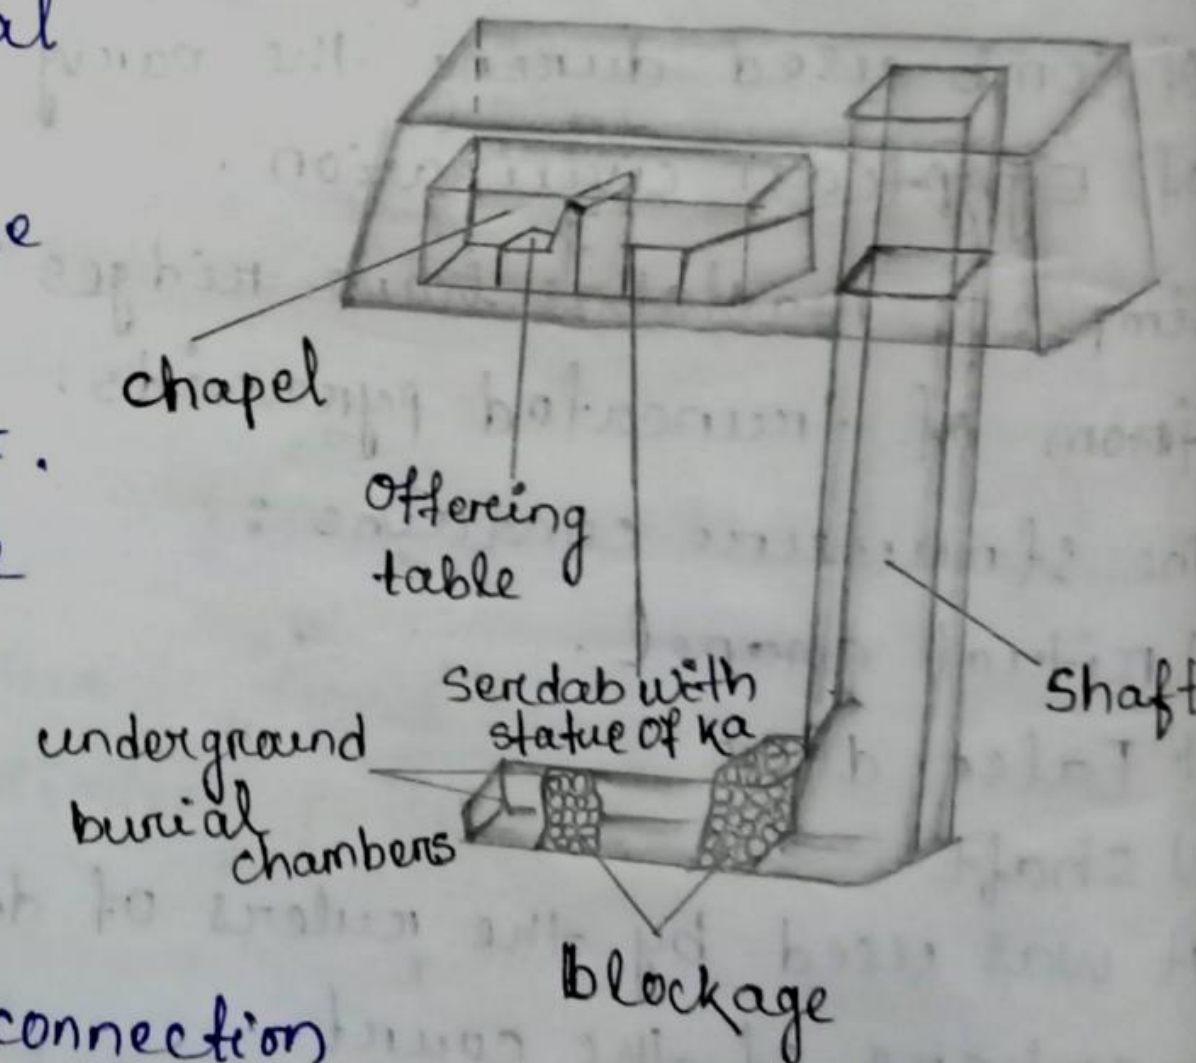 al
e
chapel
Offereing
table
Shaft
Serdab with
statue of ka
underground
burial
chambers
blockage
connection